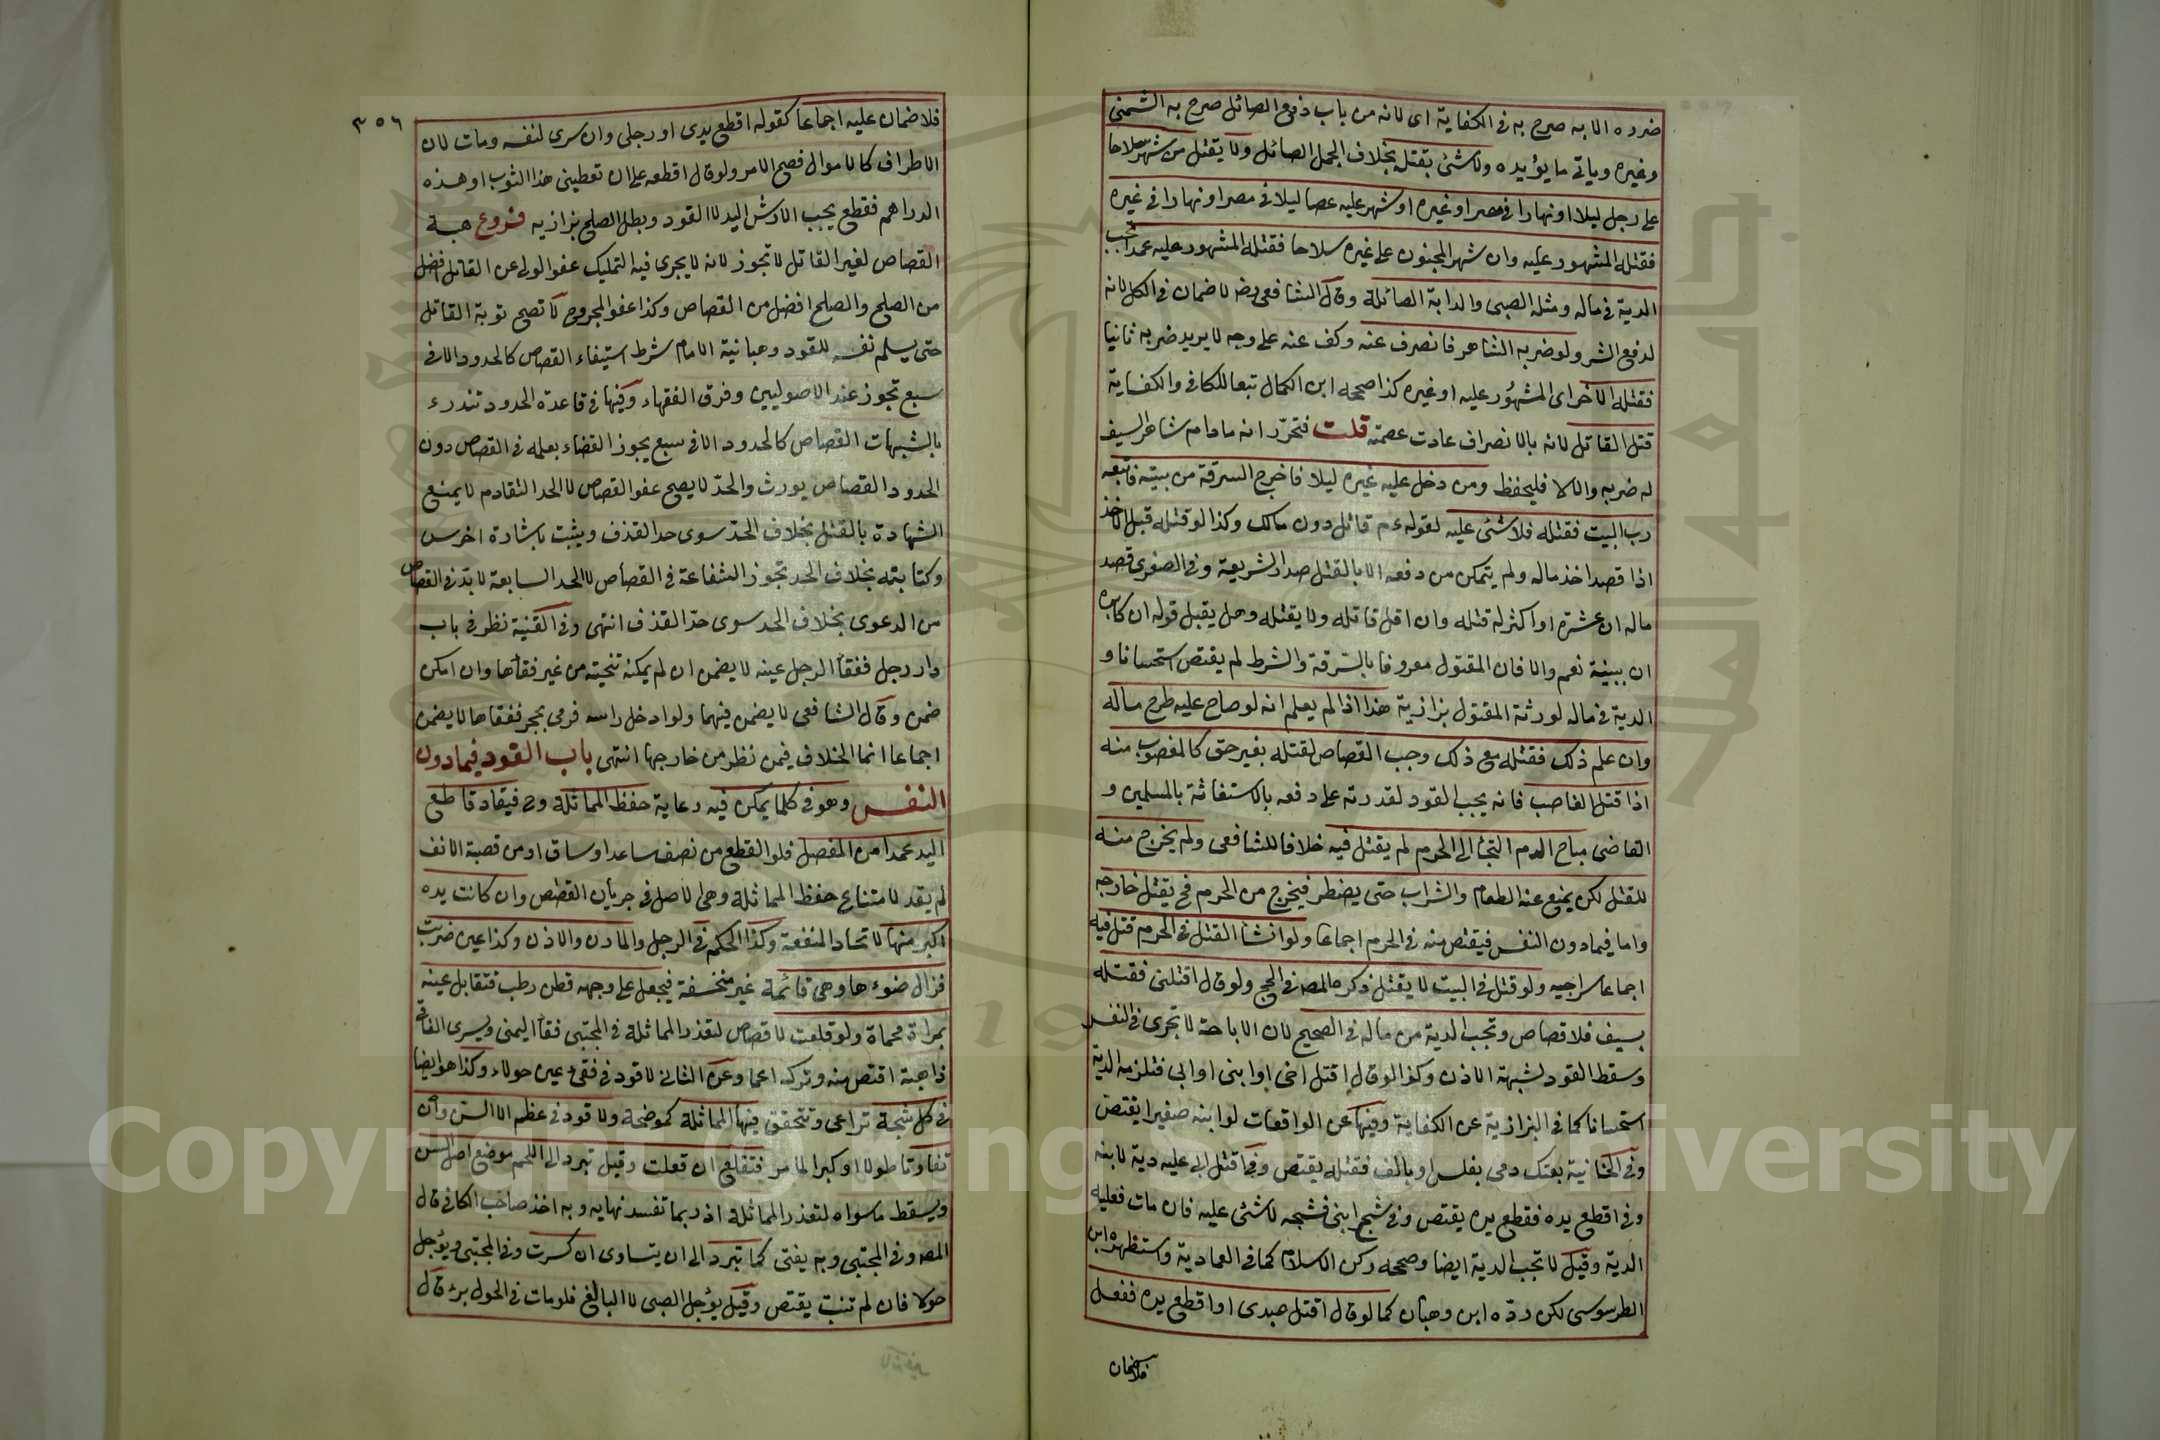 ضرره الا به صرح به في الكفاية اى لانه من باب دفع الصائل صرح به الشمنى
وغيره وياتى ما يؤيده ولا شئ بقتله بخلاف الجمل الصائل ولا يقتل من شهر سلاحا
على رجل ليلا او نهارا في مصر او غيره او شهر عليه عصا ليلا في مصر او نهارا في غيره
فقتله المشهور عليه وان شهر المجنون على غيره سلاحا فقتله المشهور عليه عمدا تجب
الدية في ماله ومثله الصبى والدابة الصائلة وقال الشافعى رضه لا ضمان في الكل لانه
لدفع الشر ولو ضربه الشاهر فانصرف عنه وكف عنه على وجه لا يريد ضربه ثانيا
فقتله الاخر اى المشهور عليه او غيره كذا صححه ابن الكمال تبعا للكافى والكفاية
قتل القاتل لانه بالانصراف عادت عصمته قلت فتحرّر انه مادام شاهر السيف
له ضربه والا لا فليحفظ ومن دخل عليه غيره ليلا فاخرج السرقة من بيته فاتبعه
رب البيت فقتله فلا شئ عليه لقوله ءم قاتل دون مالك وكذا لو قتله قبل الاخذ
اذا قصد اخذ ماله ولم يتمكن من دفعه الا بالقتل صدر الشريعة وفي الصغرى قصد
ماله ان عشرة او اكثر له قتله وان اقل قاتله ولا يقتله وهل يقبل قوله ان كابره
ان ببينة نعم والا فان المقتول معروفا بالسرقة والشرط لم يقتص استحسانا و
الدية في ماله لورثة المقتول بزازية هذا اذا لم يعلم انه لو صاح عليه طرح ماله
وان علم ذلك فقتله مع ذلك وجب القصاص لقتله بغير حق كالمغصوب منه
اذا قتل الغاصب فانه يجب القود لقدرته على دفعه بالاستغاثة بالمسلمين و
القاضى مباح الدم التجأ الى الحرم لم يقتل فيه خلافا للشافعى ولم يخرج منه
للقتل لكن يمنع عنه الطعام والشراب حتى يضطر فيخرج من الحرم فح يقتل خارجه
واما فيمادون النفس فيقتص منه في الحرم اجماعا ولو انشأ القتل في الحرم قتل فيه
اجماعا سراجيه ولو قتل في البيت لا يقتل ذكره المصه في الحج ولو قال اقتلنى فقتله
بسيف فلا قصاص وتجب الدية من ماله في الصحيح لان الاباحة لا تجرى في النفس
وسقط القود لشبهة الاذن وكذا لو قال اقتل اخى او ابنى او ابى فتلزمه الدية
استحسانا كما في البزازية عن الكفاية وفيها عن الواقعات لو ابنه صغيرا يقتص
وفي الخانية بعتك دمى بفلس او بالف فقتله يقتص وفي اقتل ابى عليه دية لابنه
وفي اقطع يده فقطع يده يقتص وفي شج ابنى فشجه لا شئ عليه فان مات فعليه
الدية وقيل لا تجب الدية ايضا وصححه ركن الاسلام كما في العمادية واستظهره ابن
الطرسوسى لكن ردّه ابن وهبان كما لو قال اقتل عبدى او اقطع يده ففعل
فلا ضمان
٣٥٦
فلا ضمان عليه اجماعا كقوله اقطع يدى او رجلى وان سرى لنفسه ومات لان
الاطراف كالاموال فصح الامر ولو قال اقطعه على ان تعطينى هذا الثوب او هذه
الدراهم فقطع يجب الارش اليد لا القود وبطل الصلح بزازيه فروع هبة
القصاص لغير القاتل لا تجوز لانه لا يجرى فيه التمليك عفو الولى عن القاتل افضل
من الصلح والصلح افضل من القصاص وكذا عفو المجروح لا تصح توبة القاتل
حتى يسلم نفسه للقود وهبانية الامام شرط استيفاء القصاص كالحدود الا في
سبع تجوز عند الاصوليين وفرق الفقهاء وفيها في قاعدة الحدود تندرء
بالشبهات القصاص كالحدود الا في سبع يجوز القضاء بعلمه في القصاص دون
الحدود القصاص يورث والحدّ لا يصح عفو القصاص لا الحد التقادم لا يمنع
الشهادة بالقتل بخلاف الحدّ سوى حد القذف ويثبت باشارة اخرس
وكتابته بخلاف الحد تجوز الشفاعة في القصاص لا الحد السابعة لا بدّ في القصاص
من الدعوى بخلاف الحد سوى حدّ القذف انتهى وفي القنية نظر في باب
دار رجل ففقأ الرجل عينه لا يضمن ان لم يمكنه تنحيته من غير فقأها وان امكن
ضمن وقال الشافعى لا يضمن فيهما ولو ادخل راسه فرمى بحجر ففقاها لا يضمن
اجماعا انما الخلاف فيمن نظر من خارجها انتهى باب القود فيمادون
النفس وهو في كلما يمكن فيه رعاية حفظ المماثلة وح فيقاد قاطع
اليد عمدا من المفصل فلو القطع من نصف ساعد او ساق او من قصبة الانف
لم يقد لامتناع حفظ المماثلة وهى الاصل في جريان القصص وان كانت يده
اكبر منها لاتحاد المنفعة وكذا الحكم في الرجل والمارن والاذن وكذا عين ضربت
فزال ضوءها وهى قائمة غير منخسفة فيجعل على وجهه قطن رطب فتقابل عينه
بمراة محماة ولو قلعت لا قصاص لتعذر المماثلة في المجتبى فقأ اليمنى ويسرى الفاقى
ذاهبة اقتص منه وتركه اعما وعن الثانى لا قود في فقئ عين حولاء وكذا هو ايضا
في كل شجة تراعى وتتحقق فيها المماثلة كموضحة ولا قود في عظم الا السن وان
تفاوتا طولا او كبرا لما مر فتقلع ان قعلت وقيل تبرد الى اللحم موضع اصل السن
ويسقط ما سواه لتعذر المماثلة اذ ربما تفسد نهايه وبه اخذ صاحب الكافى قال
المصه وفي المجتبى وبه يفتى كما تبرد الى ان يتساوى ان كسرت وفي المجتبى ويؤجل
حولا فان لم تنبت يقتص وقيل يؤجل الصبى لا البالغ فلو مات في الحول برئ وقال
Copyright © King Saud University